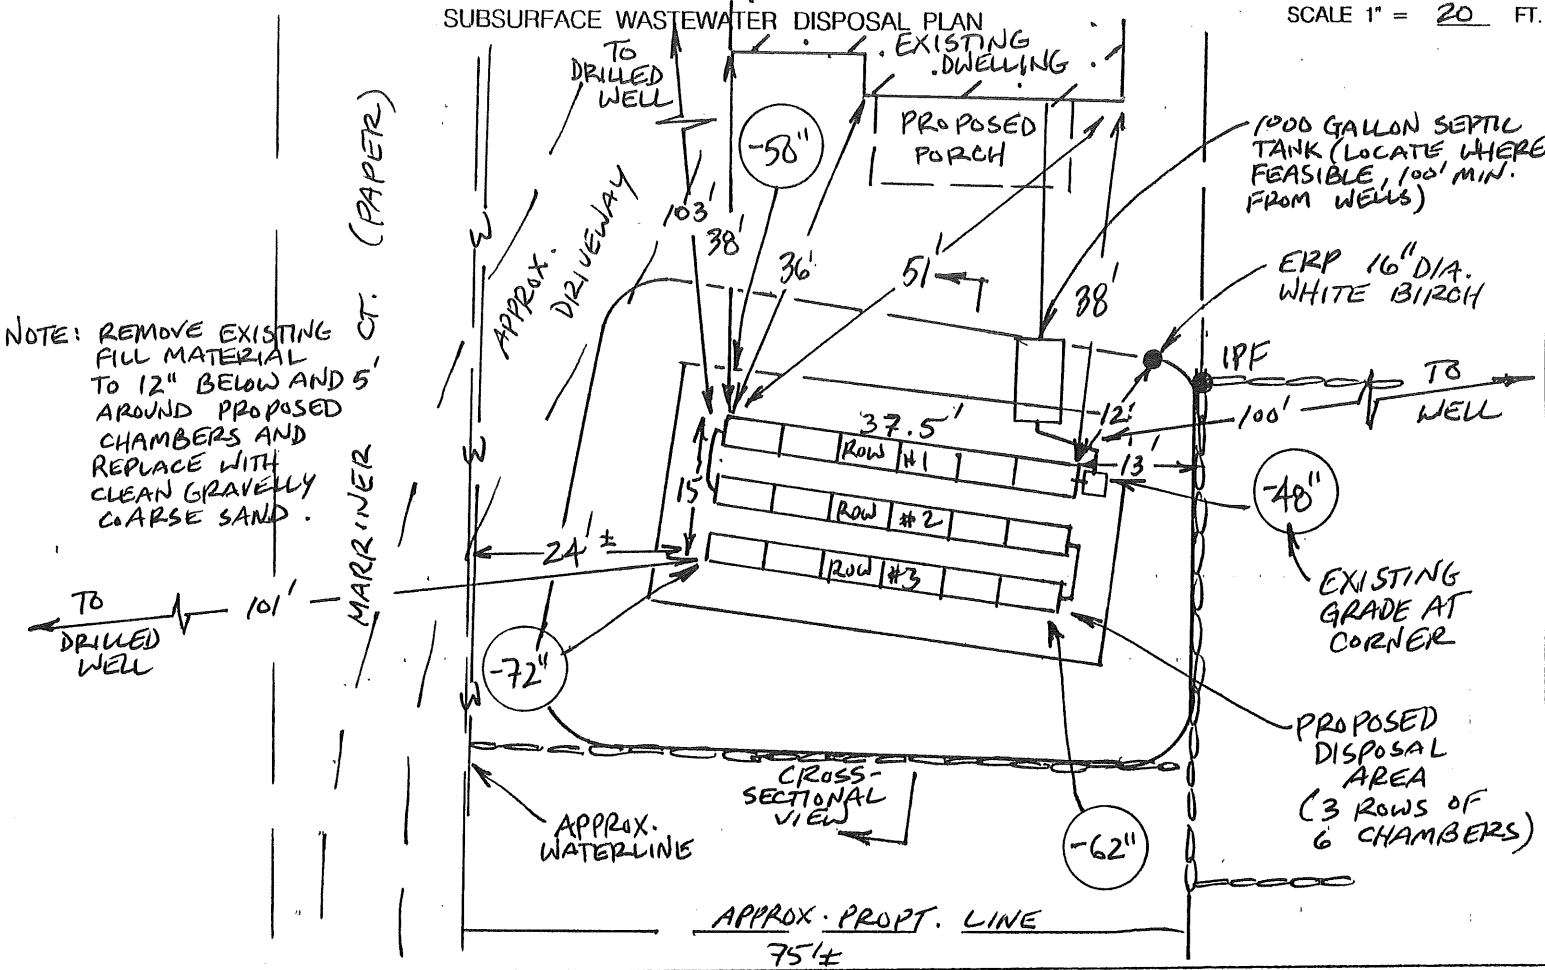 SUBSURFACE WASTEWATER DISPOSAL PLAN
SCALE 1" = 20 FT.
TO
DRILLED
WELL
EXISTING
DWELLING
PROPOSED
PORCH
-58"
1000 GALLON SEPTIC
TANK (LOCATE WHERE
FEASIBLE, 100' MIN.
FROM WELLS)
MARRINER CT. (PAPER)
APPROX.
DRIVEWAY
103'
38'
36'
51'
38'
ERP 16" DIA.
WHITE BIRCH
NOTE: REMOVE EXISTING
FILL MATERIAL
TO 12" BELOW AND 5'
AROUND PROPOSED
CHAMBERS AND
REPLACE WITH
CLEAN GRAVELLY
COARSE SAND.
W
W
W
IPF
TO
WELL
100'
12'
13'
37.5'
ROW #1
ROW #2
ROW #3
15'
24'±
-48"
EXISTING
GRADE AT
CORNER
TO
DRILLED
WELL
101'
-72"
-62"
PROPOSED
DISPOSAL
AREA
(3 ROWS OF
6 CHAMBERS)
CROSS-
SECTIONAL
VIEW
APPROX.
WATERLINE
APPROX. PROPT. LINE
75'±